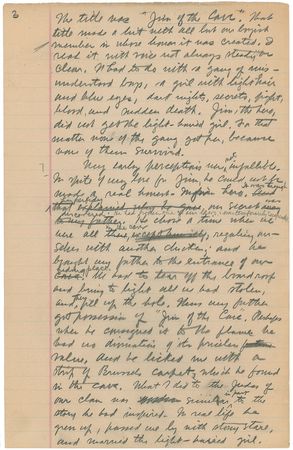 3
The title was "Jim of the Cave." That
title made a hit with all but one
member in whose honor it was created. I
read it with voice not always steady or
clear. It had to do with a gang of mis-
understood boys, a girl with light hair
and blue eyes, dark nights, secrets, fight,
blood, and sudden death. Jim, the hero,
did not get the light-haired girl. For that
matter none of the gang got her, because
none of them survived.
My early perceptions were not infallible.
In spite of my love for Jim he could not be
made a real honest hero. It was through
his perfidy
discovered
to my father. There I was when he
we were all there, in the cave, regaling our-
selves with another chicken; and he
brought my father to the entrance of our
hiding place. He had to tear off the board roof
and bring to light all we had stolen,
and fill up the hole. Thus my father
got possession of "Jim of the Cave." Perhaps
when he consigned it to the flames he
had no of its priceless
value. And he licked me with a
strip of Brussels carpet, which he found
in the cave. What I did to the Judas of
our clan was similar, in part, to the
story he had inspired. In real life he
grew up, passed me by with stony stare,
and married the light-haired girl.